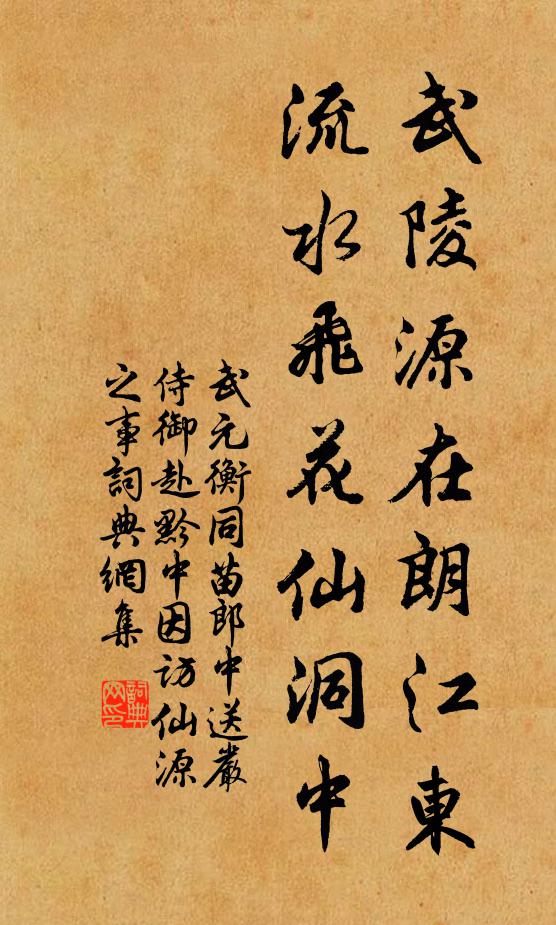 武陵源在朗江東
流水飛花仙洞中
武元衡同苗郎中送嚴
侍御赴黔中因訪仙源
之事詞典網集
詞典
网印